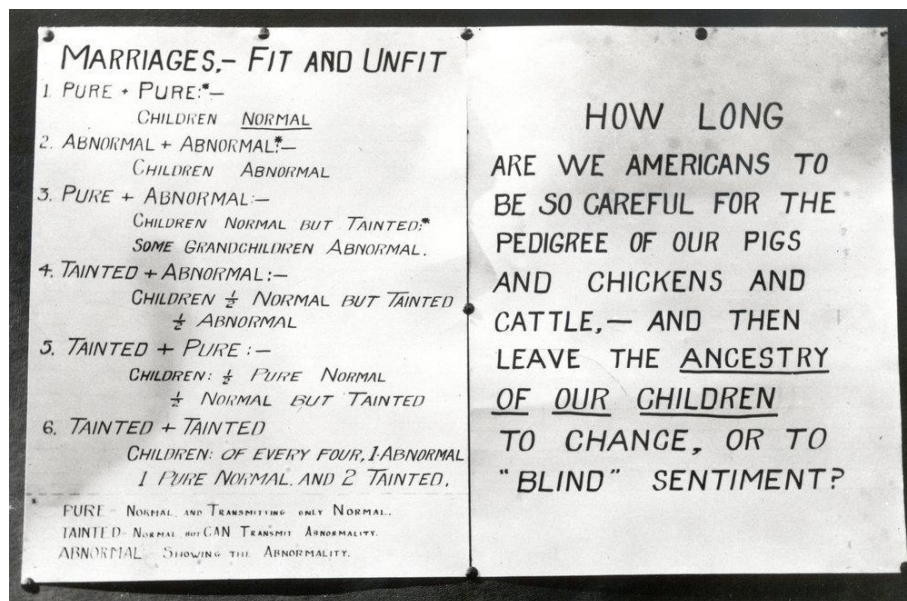 MARRIAGES,– FIT AND UNFIT
1. PURE + PURE:*–
CHILDREN NORMAL
2. ABNORMAL + ABNORMAL:*–
CHILDREN ABNORMAL
3. PURE + ABNORMAL:–
CHILDREN NORMAL BUT TAINTED:*
SOME GRANDCHILDREN ABNORMAL.
4. TAINTED + ABNORMAL:–
CHILDREN ½ NORMAL BUT TAINTED
½ ABNORMAL
5. TAINTED + PURE:–
CHILDREN: ½ PURE NORMAL
½ NORMAL BUT TAINTED
6. TAINTED + TAINTED
CHILDREN: OF EVERY FOUR, 1-ABNORMAL
1 PURE NORMAL. AND 2 TAINTED.
* PURE – NORMAL AND TRANSMITTING ONLY NORMAL.
TAINTED– NORMAL BUT CAN TRANSMIT ABNORMALITY.
ABNORMAL SHOWING THE ABNORMALITY.
HOW LONG
ARE WE AMERICANS TO
BE SO CAREFUL FOR THE
PEDIGREE OF OUR PIGS
AND CHICKENS AND
CATTLE,– AND THEN
LEAVE THE ANCESTRY
OF OUR CHILDREN
TO CHANCE, OR TO
"BLIND" SENTIMENT?